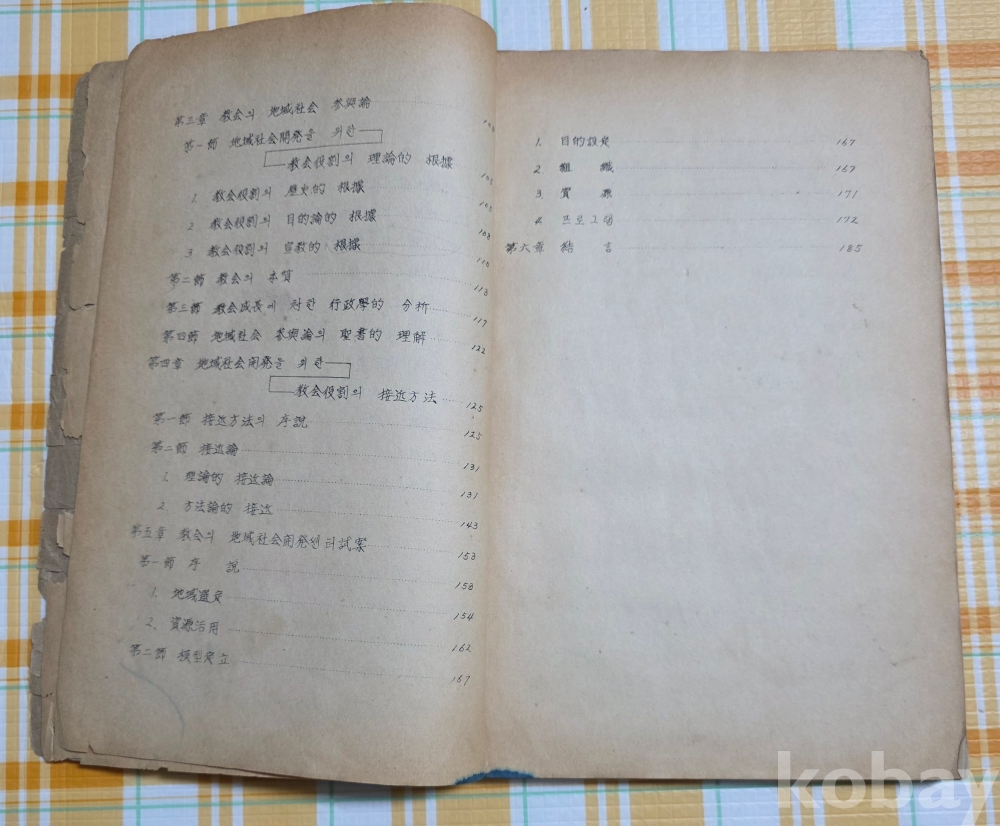 第三章 敎会의 地域社会 参與論
第一節 地域社会開発을 위한
敎会役割의 理論的 根據
1. 敎会役割의 歷史的 根據
2 敎会役割의 目的論的 根據 108
3 敎会役割의 宣敎的 根據 110
第二節 敎会의 本質 113
第三節 敎会成長에 対한 行政學的 分析 117
第四節 地域社会 参與論의 聖書的 理解 122
第四章 地域社会開発을 위한
敎会役割의 接近方法 125
第一節 接近方法의 序說 125
第二節 接近論 131
1. 理論的 接近論 131
2. 方法論的 接近 143
第五章 敎会의 地域社会開発센터試案 153
第一節 序 說 153
1. 地域選定 154
2. 資源活用 162
第二節 模型定立 167
1. 目的設定 167
2. 組織 167
3. 實 171
4. 프로그램 172
第六章 結 言 185
kobay